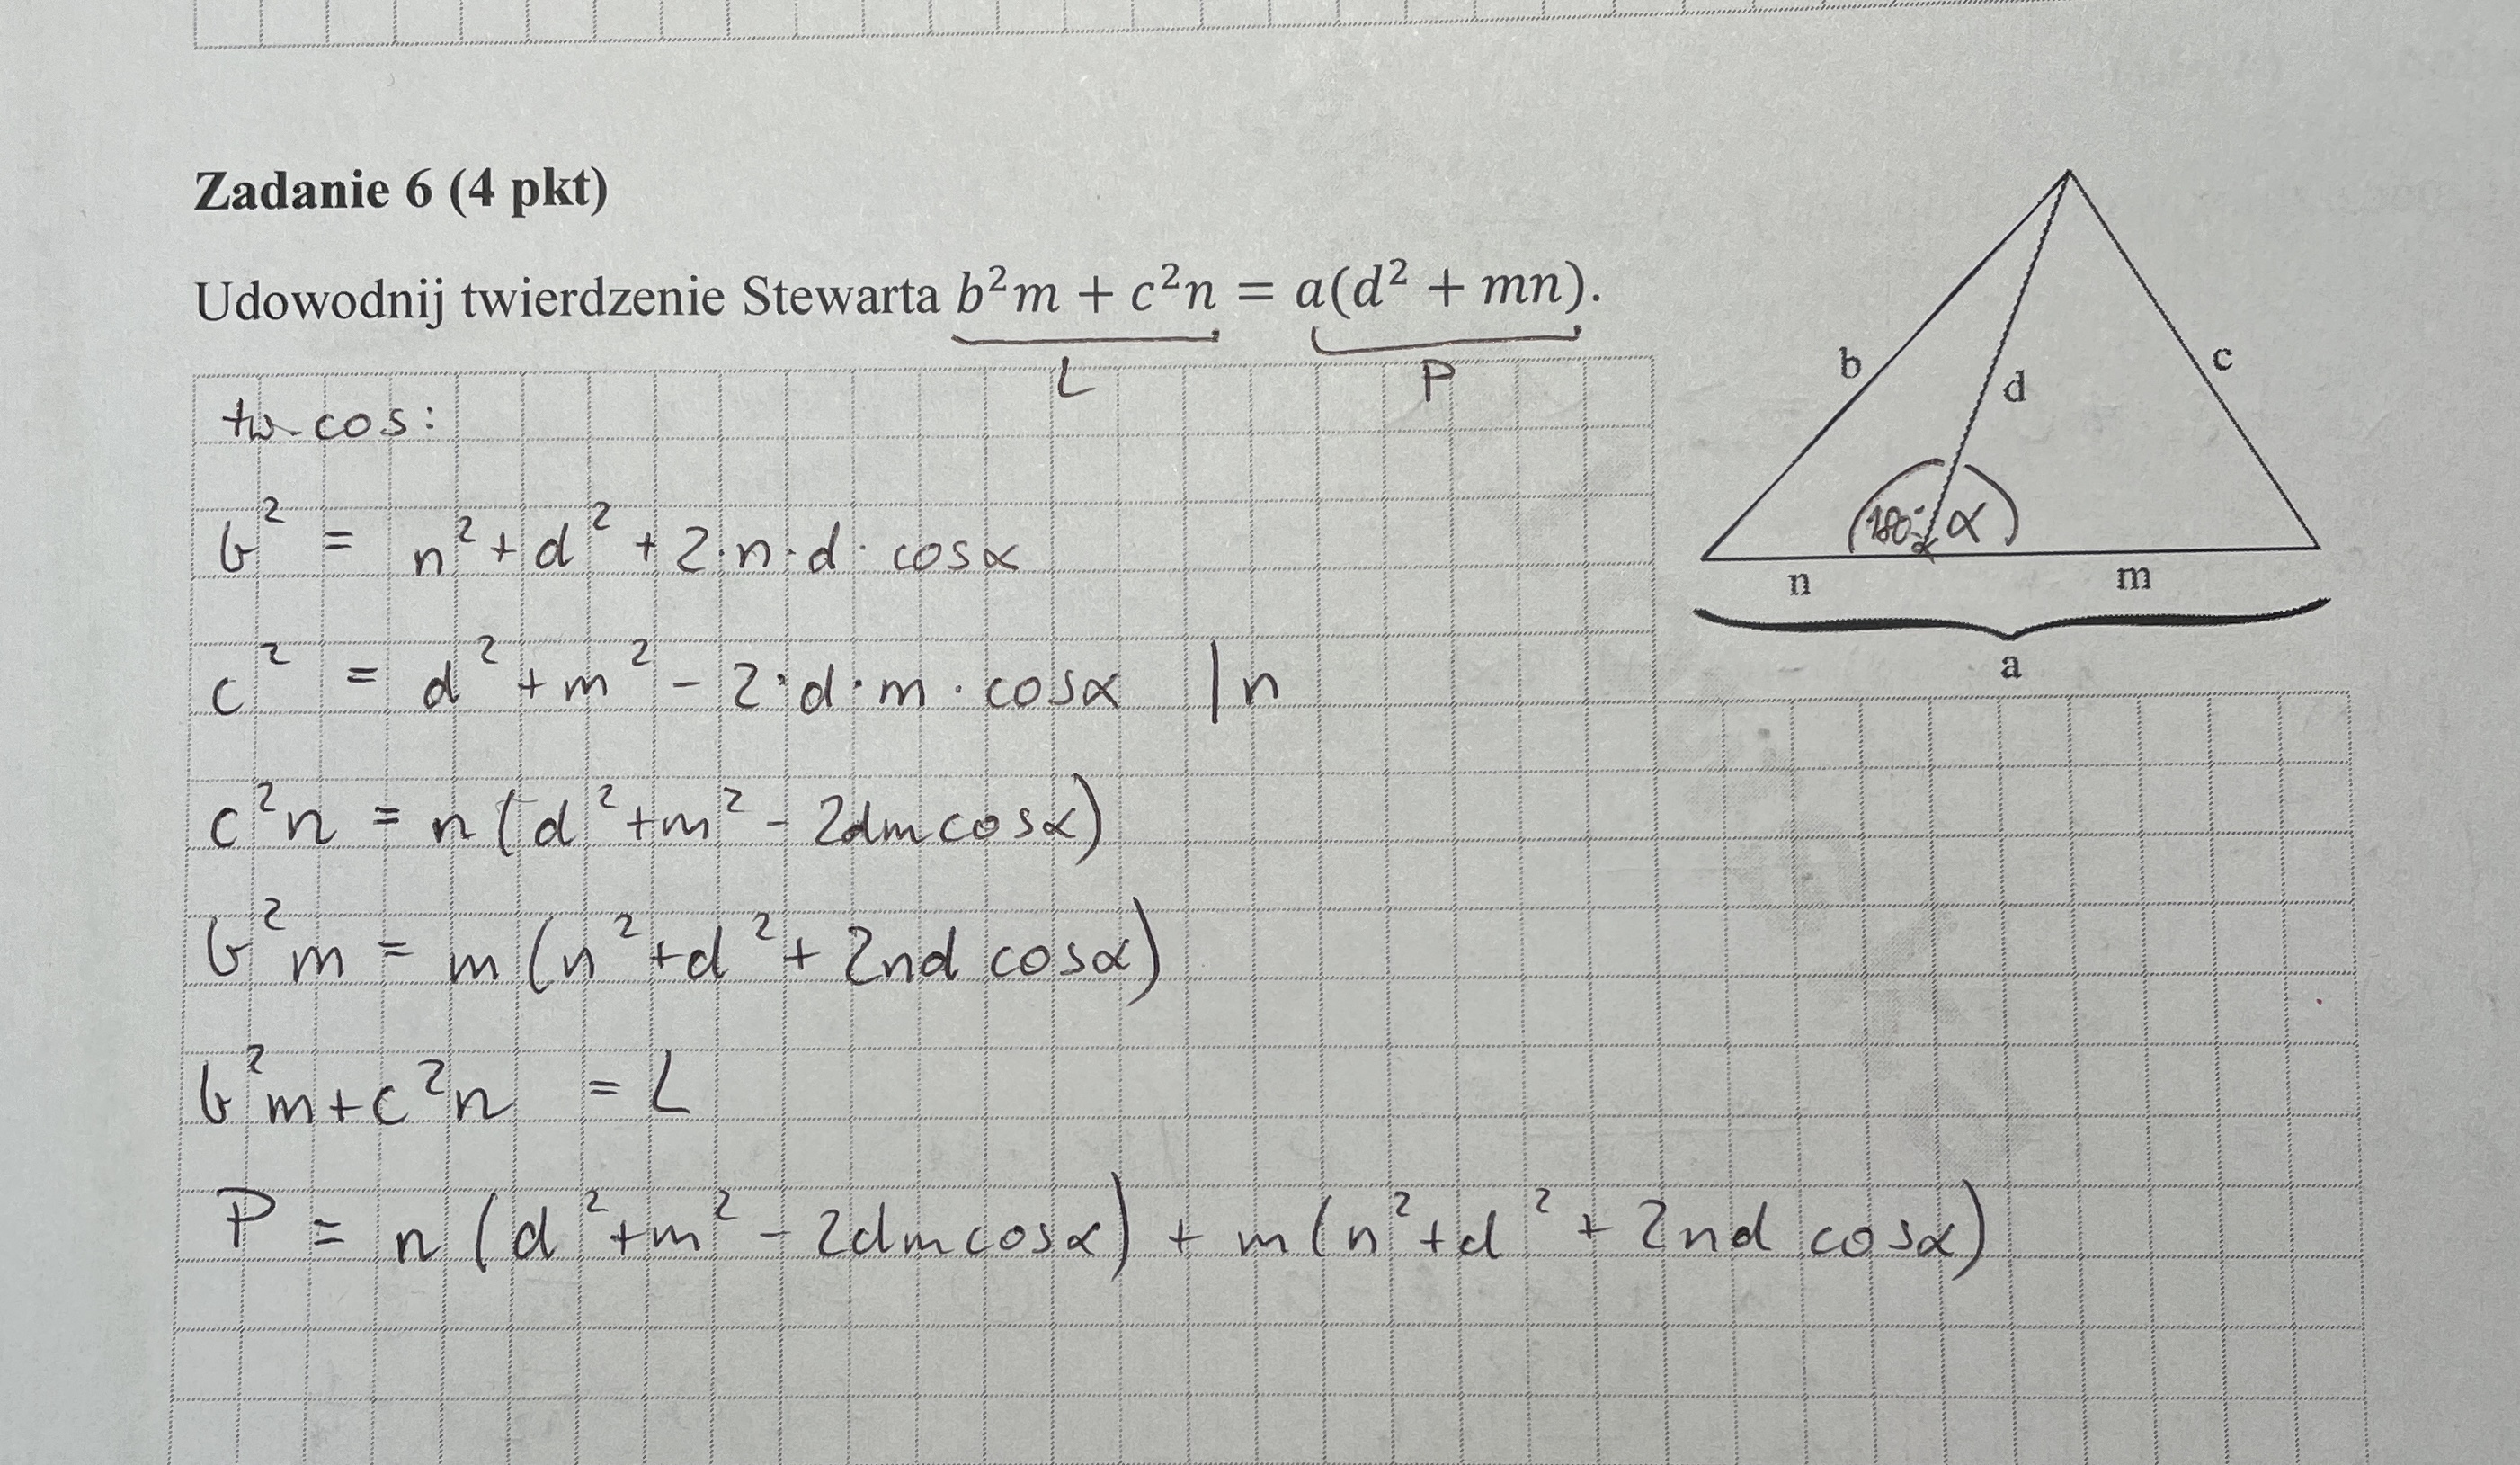 Zadanie 6 (4 pkt)
Udowodnij twierdzenie Stewarta b²m + c²n = a(d² + mn).
L P
b c
d
180°-α α
n m
a
tw. cos:
b² = n² + d² + 2·n·d·cosα
c² = d² + m² - 2·d·m·cosα |n
c²n = n(d²+m² - 2dm cosα)
b²m = m(n²+d² + 2nd cosα)
b²m+c²n = L
P = n(d²+m² - 2dm cosα) + m(n²+d² + 2nd cosα)